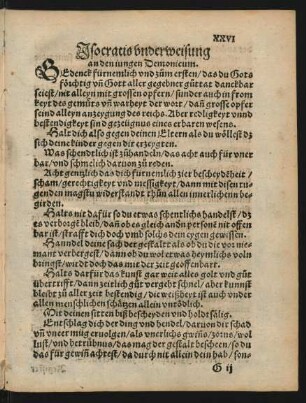 XXVI
Isocratis vnderweisung
an den iungen Demonicum.
BEdenck fürnemlich vnd züm ersten / das du Gots
förchtig vñ Gott aller gegebner güttat danckbar
seiest / nit alleyn mit grossen opfern / sunder auch in from
keyt des gemüts vñ warheyt der wort / dañ grosse opfer
seind alleyn anzeygung des reichs. Aber redligkeyt vnnd
bestendigkeyt sind gezeügnus eines erbaren wesens.
Halt dich also gegen deinen Eltern als du wöllest dz
sich deine kinder gegen dir erzeygten.
Was schendtlich ist zühandeln / das acht auch für vner
bar / vnd schmelich daruon zü reden.
Acht gentzlich das dich fürnemlich zier bescheydẽheit /
scham / gerechtigkeyt vnd messigkeyt / dann mit disen tu-
genden magstu widerstandt thün allen innerlichenn be-
girden.
Halts nit dafür so du etwas schentlichs handelst / dz
es verborgẽ bleib / dañ obs gleich andñ personẽ nit offen
bar ist / straft dich doch vmb solchs dein eygen gewissen.
Hanndel deine sach der gestalt als ob du die vor nie-
mant verbergest / dann ob du wol etwas heymlichs voln
bringst / wirt doch das mit der zeit geoffenbart.
Halts darfür das kunst gar weit alles golt vnd güt
übertrifft / dann zeitlich güt vergeht schnel / aber kunst
bleibt zü aller zeit bestendig / die weißheyt ist auch vnder
allen menschlichen schätzen allein vntödlich.
Mit deinen sitten biß bescheyden vnd holdtsälig.
Entschlag dich der ding vnd hendel / daruon dir schad
vñ vneer müg eruolgen / als vnerlichs gwiñs / zorns / wol
lust / vnd betrübnus / das mag der gestalt beschen / so du
das für gewiñ achtest / da durch nit allein dein hab / son-
G ij